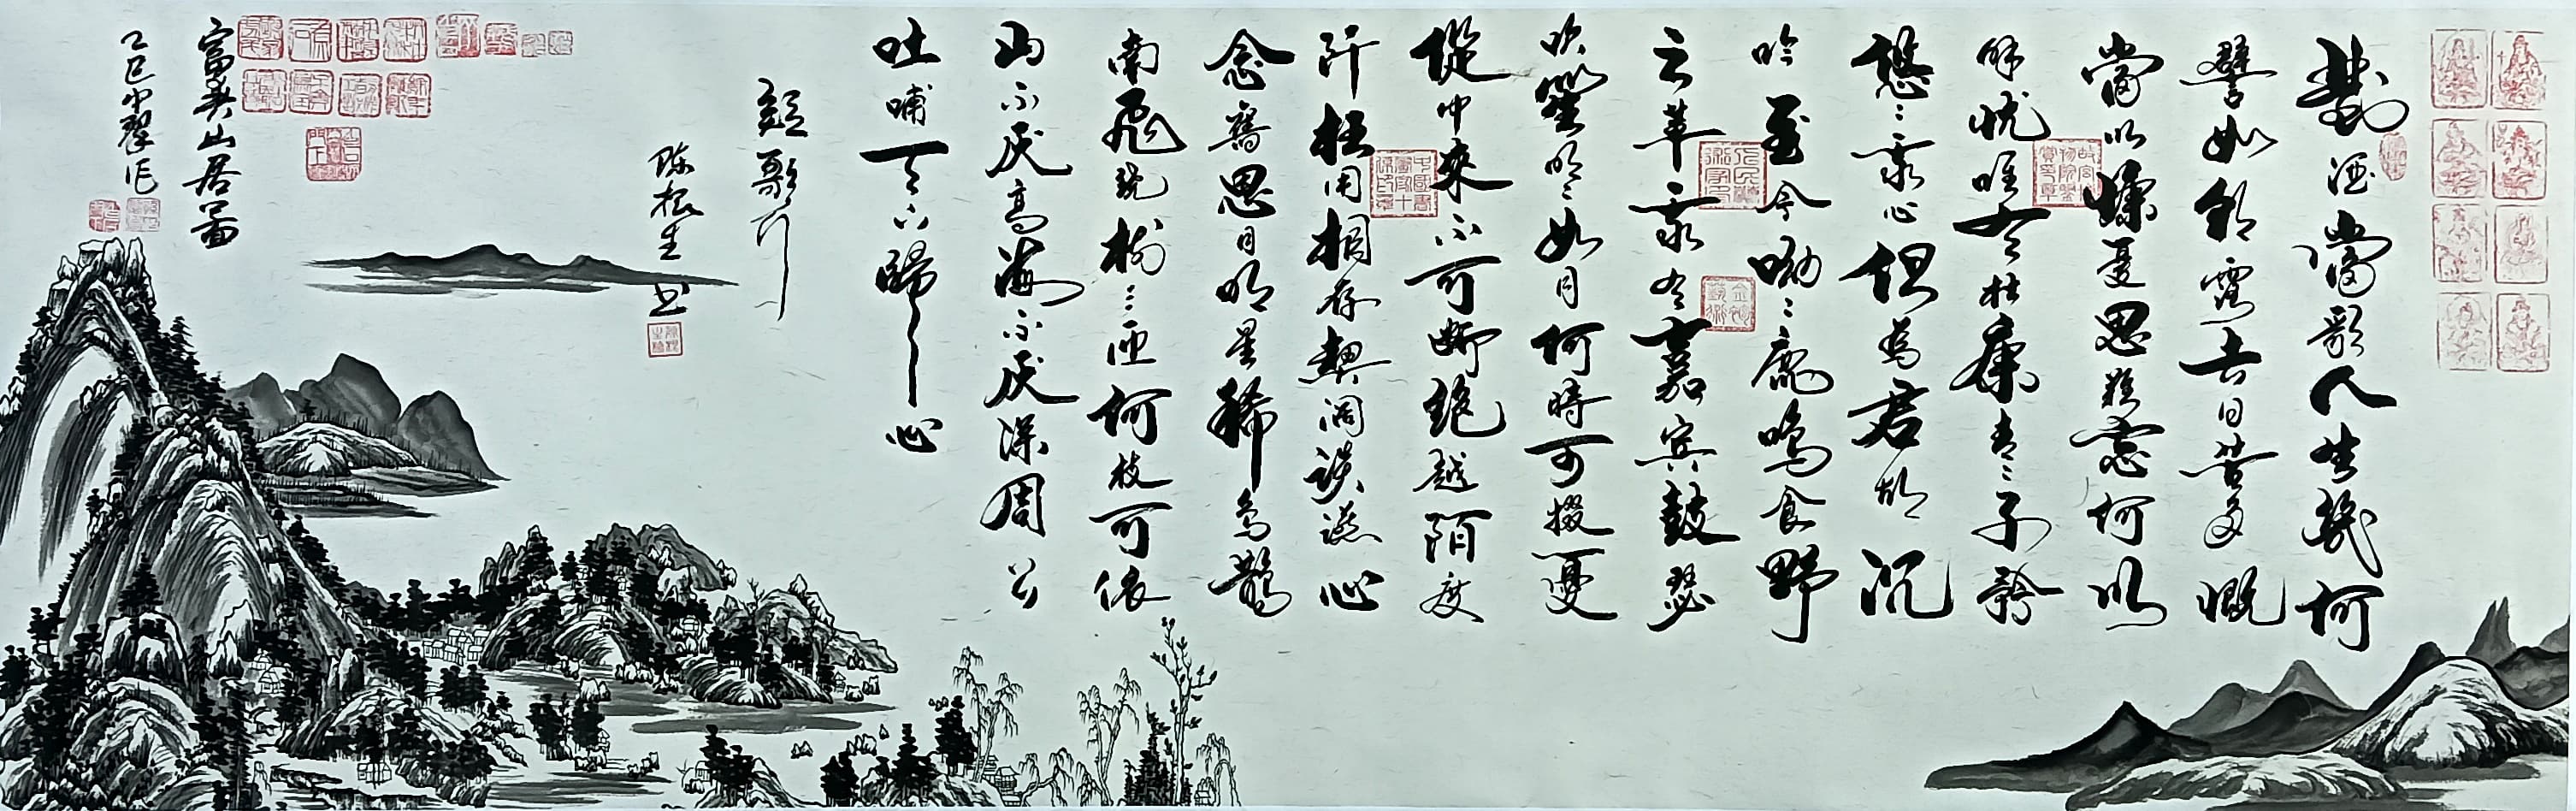 對酒當歌人生幾何
譬如朝露去日苦多慨
當以慷憂思難忘何以
解忧唯有杜康青〻子衿
悠〻我心但為君故沉
吟至今呦〻鹿鳴食野
之苹我有嘉宾鼓瑟
吹笙明〻如月何時可掇憂
從中來不可断绝越陌度
阡枉用相存契阔談讌心
念舊恩月明星稀烏鵲
南飛繞樹三匝何枝可依
山不厌高海不厌深周公
吐哺天下歸心
短歌行
陈根生书
富春山居图
乙巳小翠作